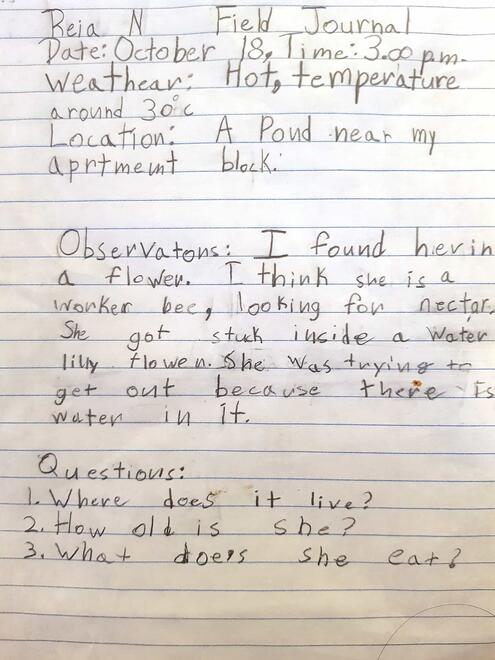 Reia N Field Journal
Date: October 18, Time: 3.00 p.m.
Weathear: Hot, temperature
around 30°c
Location: A Pond near my
aprtmemt block.
Observatons: I found her in
a flower. I think she is a
worker bee, looking for nectar.
She got stuck inside a water
lilly flower. She was trying to
get out because there is
water in it.
Questions:
1. Where does it live?
2. How old is she?
3. What does she eat?